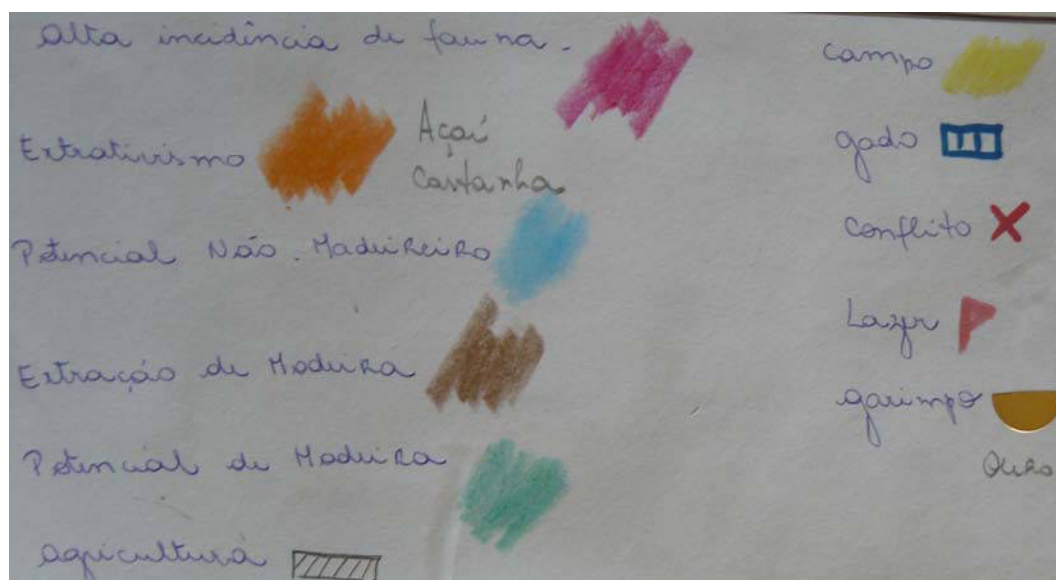 Alta incidência de fauna.
Extrativismo
Açaí
Castanha
Potencial Não Madeireiro
Extração de Madeira
Potencial de Madeira
agricultura
campo
gado
conflito
Lazer
garimpo
Ouro